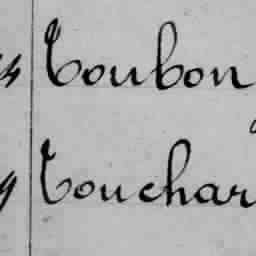 Toubon
Touchar